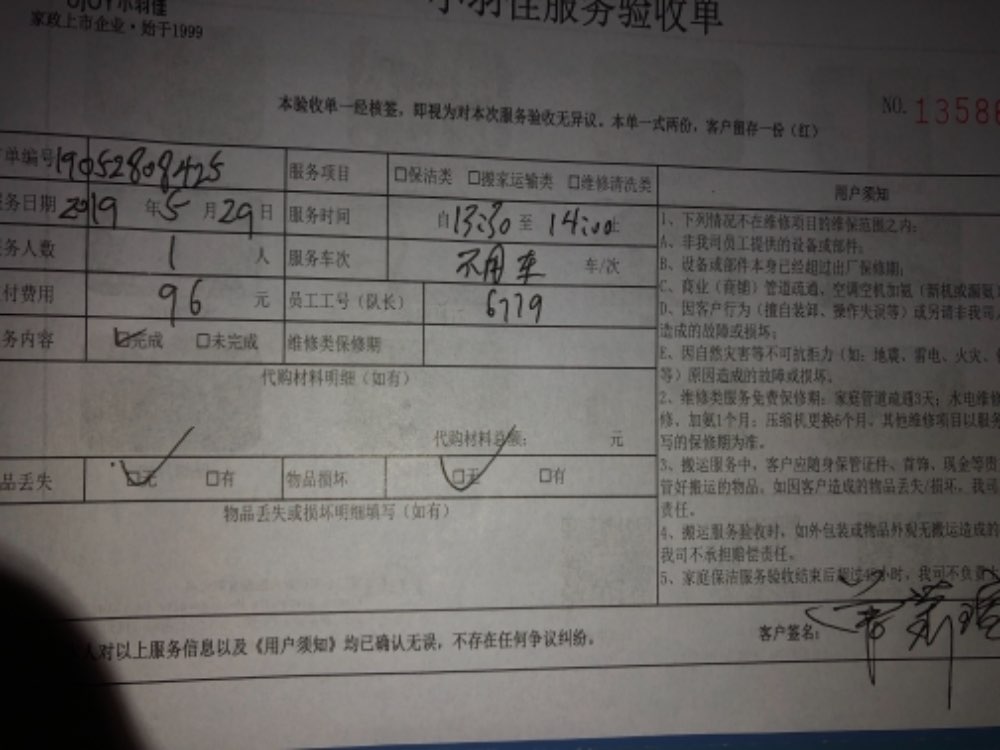 小羽佳服务验收单
小羽佳
家政上市企业·始于1999
本验收单一经核签，即视为对本次服务验收无异议。本单一式两份，客户留存一份（红）
NO. 1358
单编号 19052808425 服务项目 □保洁类 □搬家运输类 □维修清洗类
务日期 2019 年 5 月 29 日 服务时间 自 13:30 至 14:00 止
务人数 1 人 服务车次 不用车 车/次
付费用 96 元 员工工号（队长） 6779
务内容 完成 □未完成 维修类保修期
代购材料明细（如有）
代购材料总额： 元
品丢失 □无 □有 物品损坏 □无 □有
物品丢失或损坏明细填写（如有）
用户须知
1、下列情况不在维修项目的维保范围之内：
A、非我司员工提供的设备或部件；
B、设备或部件本身已经超过出厂保修期；
C、商业（商铺）管道疏通，空调空机加氨（新机或漏氨
D、因客户行为（擅自装卸、操作失误等）或另请非我司
造成的故障或损坏；
E、因自然灾害等不可抗拒力（如：地震、雷电、火灾、
等）原因造成的故障或损坏。
2、维修类服务免费保修期：家庭管道疏通3天；水电维修
修，加氨1个月；压缩机更换6个月，其他维修项目以服务
写的保修期为准。
3、搬运服务中，客户应随身保管证件、首饰、现金等贵
管好搬运的物品，如因客户造成的物品丢失/损坏，我司
责任。
4、搬运服务验收时，如外包装或物品外观无搬运造成的
我司不承担赔偿责任。
5、家庭保洁服务验收结束后超过48小时，我司不负责
人对以上服务信息以及《用户须知》均已确认无误，不存在任何争议纠纷。
客户签名：